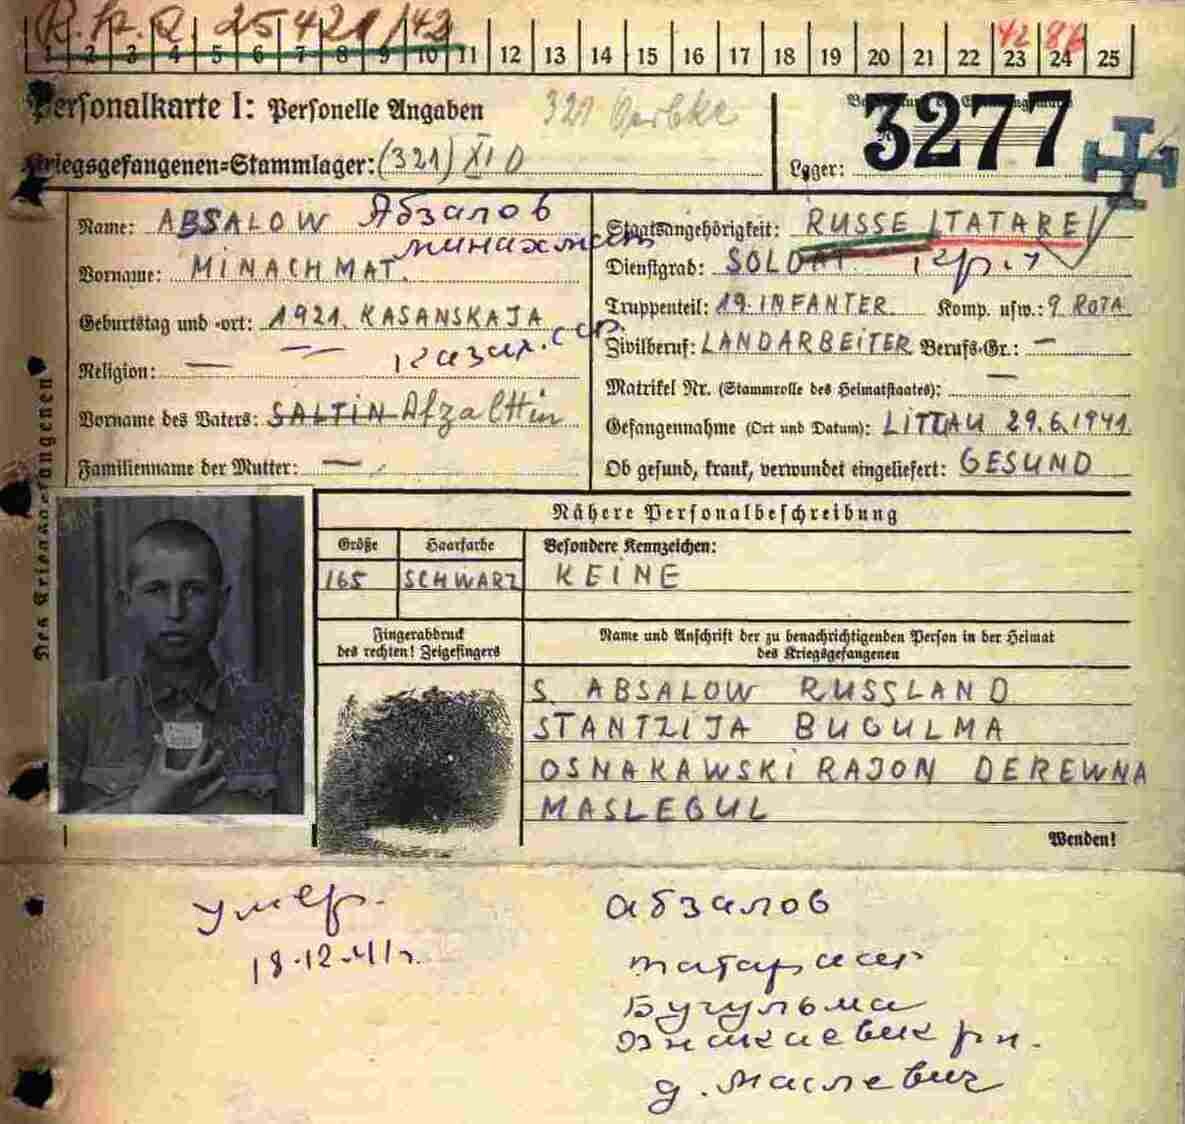 R. K. Q. 25421/42
42 86
1 2 3 4 5 6 7 8 9 10 11 12 13 14 15 16 17 18 19 20 21 22 23 24 25
Personalkarte I: Personelle Angaben
321 Oerbke
3277
Kriegsgefangenen=Stammlager: (321) XI D
Lager:
Name: ABSALOW Абзалов
Staatsangehörigkeit: RUSSE (TATARE)
Vorname: MINACHMAT. минахмат
Dienstgrad: SOLDAT.
Geburtstag und -ort: 1921. KASANSKAJA
Truppenteil: 19. INFANTER. Komp. usw.: 9 ROTA
Казан. сср.
Zivilberuf: LANDARBEITER Berufs-Gr.: —
Religion: —
Matrikel Nr. (Stammrolle des Heimatstaates): —
Vorname des Vaters: SALTIN Afzalttin
Gefangennahme (Ort und Datum): LITTAU 29.6.1941.
Familienname der Mutter: —
Ob gesund, krank, verwundet eingeliefert: GESUND
Des Kriegsgefangenen
Nähere Personalbeschreibung
Größe Haarfarbe Besondere Kennzeichen:
165 SCHWARZ KEINE
Fingerabdruck
des rechten! Zeigefingers
Name und Anschrift der zu benachrichtigenden Person in der Heimat
des Kriegsgefangenen
S. ABSALOW RUSSLAND
STANTZIJA BUGULMA
OSNAKAWSKI RAJON DEREWNA
MASLEGUL
Wenden!
умер.
18.12.41г.
Абзалов
татар. сср
Бугульма
р-н.
д. Маслевич